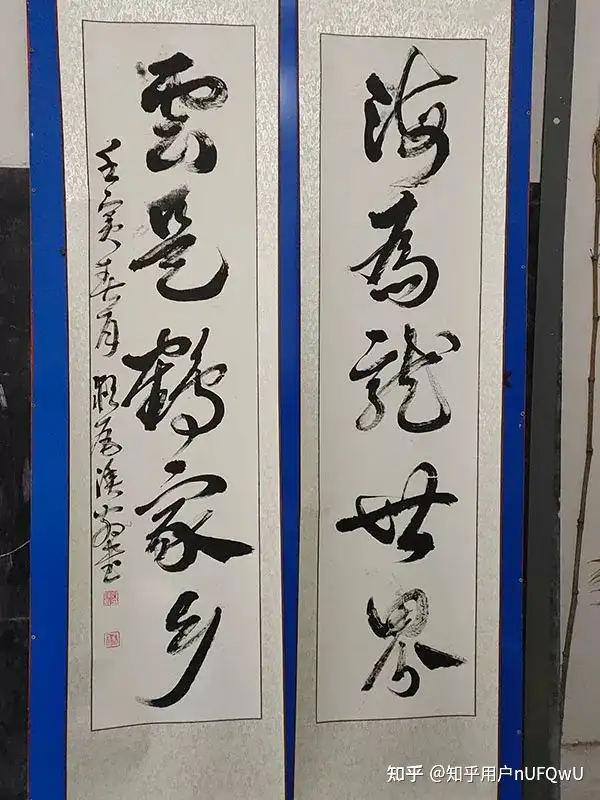 海為龍世界
雲是鶴家乡
壬寅春月
知乎 @知乎用户nUFQwU